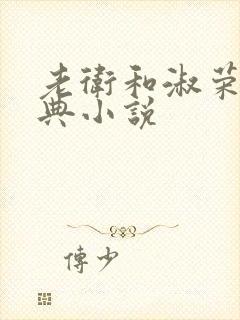 老衛和淑荣
典小說
傅少